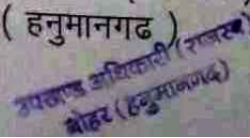 ( हनुमानगढ )
उपखण्ड अधिकारी (राजस्व)
नोहर (हनुमानगढ)